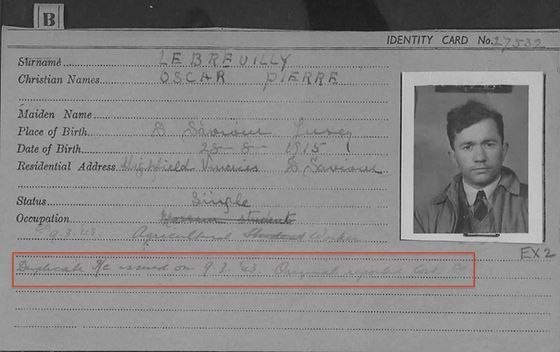 B
IDENTITY CARD No. 27532
Surname LE BREUILLY
Christian Names OSCAR PIERRE
Maiden Name
Place of Birth St Saviour Jersey
Date of Birth 28-8-1915
Residential Address Highfield Vineries St Saviour
Status Single
Occupation student
9.3.43 Agricultural Student Worker
Duplicate I/C issued on 9.3.43. Original reported lost.
EX 2